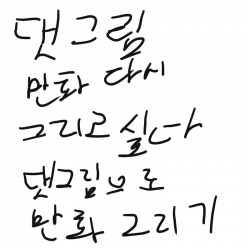 댓그림
만화 다시
그리고 싶다
댓그림으로
만화 그리기